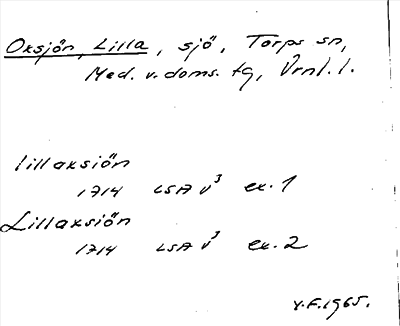 Oxsjön, Lilla, sjö, Torps sn,
Med. v. doms. tg, Vrnl. l.
lillaxsiön
1714 LSA V³ ex. 1
Lillaxsiön
1714 LSA V³ ex. 2
V.F. 1965.